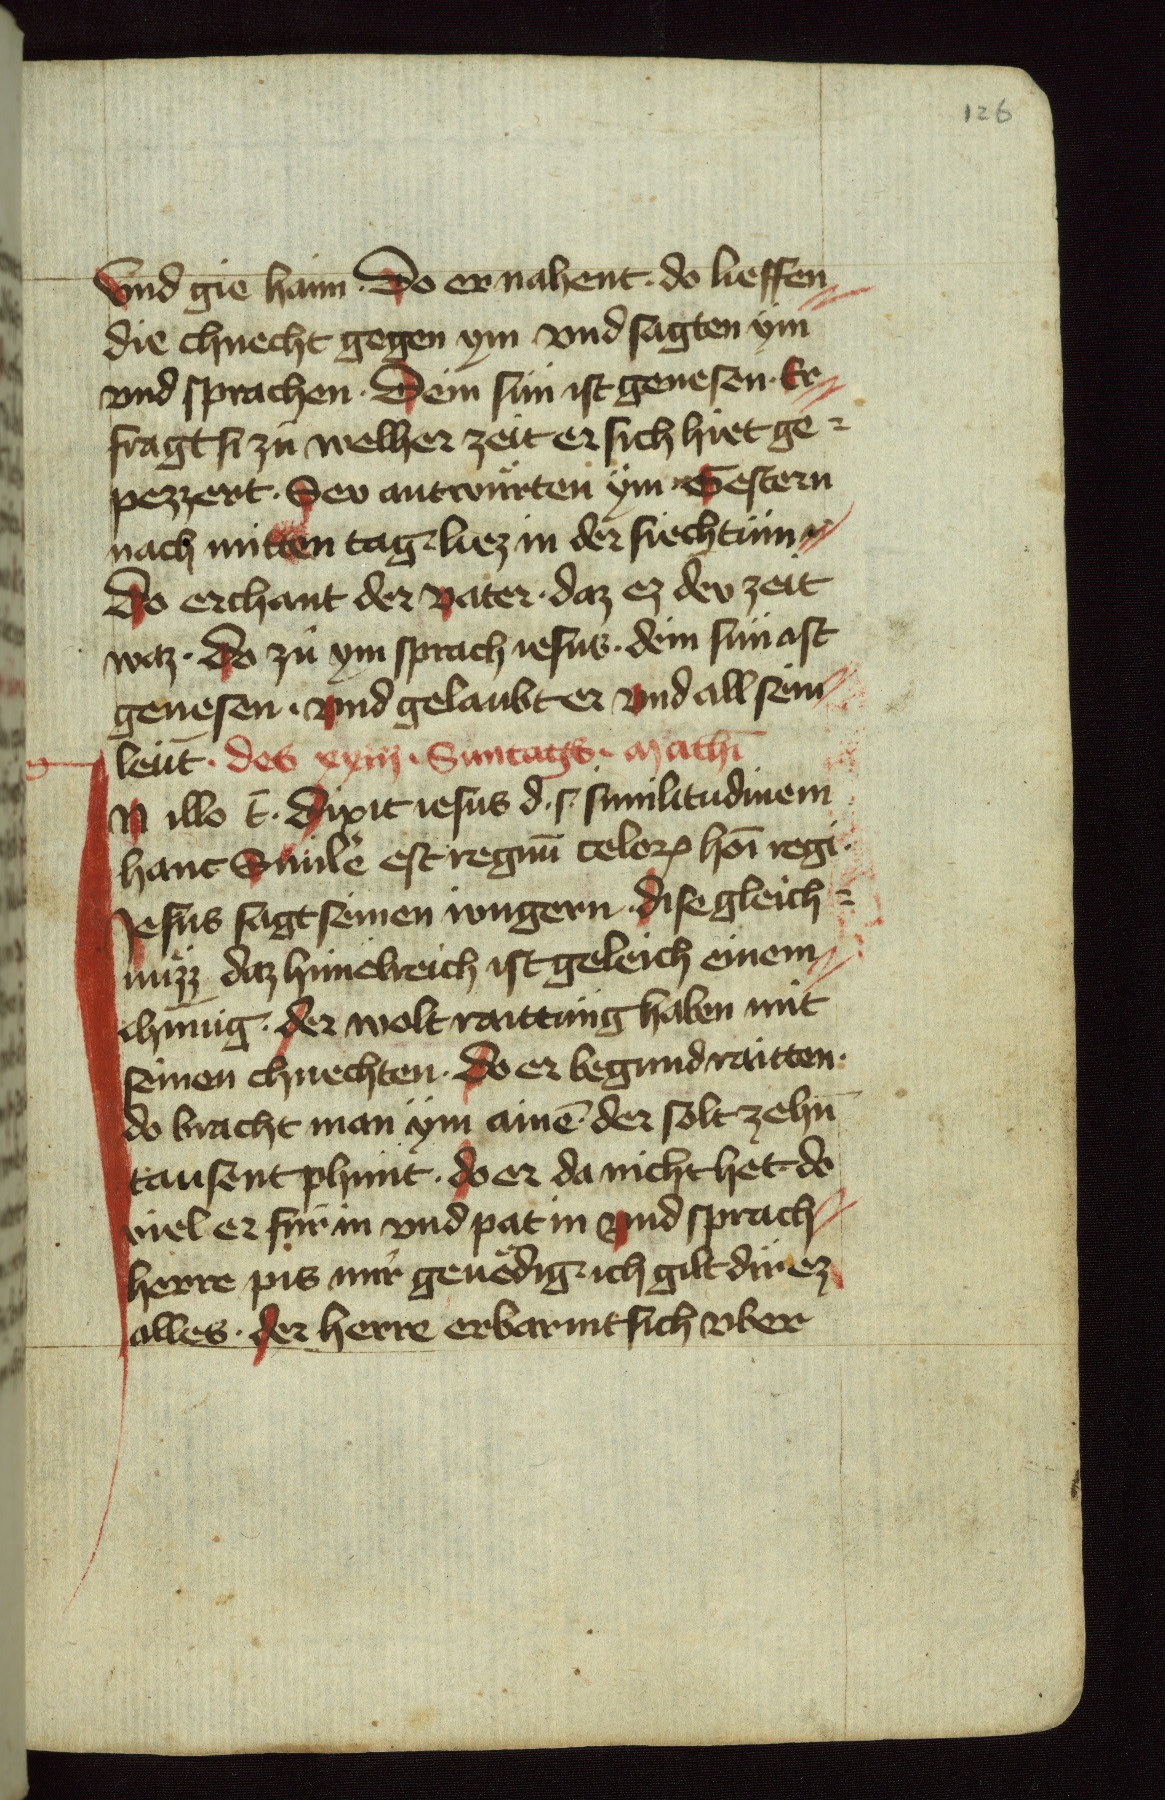 126
Vnd gie haim · Do er nahent · do lieffen
die chnecht gegen ym vnd sagten ÿm
vnd sprachen · Dein sun ist genesen · Er
fragt si zů welher zeit er sich hiet ge⸗
pezzert · Sev antwůrten ÿm · Gestern
nach mitten tag · liez in der siechtum
Do erchant der vater · daz ez dev zeit
waz · Do zů ym sprach iesus · dein sun ist
genesen · vnd gelaubt er vnd all sein
leüt · des xxiij · Suntags · Mathī
N illo t̄ · Dixit iesus d · s · similitudinem
hanc Simile est regnū celoꝝ hoī regi ·
Jesus sagt seinen iungern · dise gleich⸗
nůzz daz himelreich ist geleich einem
chunig · der wolt raittung haben mit
seinen chnechten · Do er begund raitten ·
do bracht man ÿm ainē · der solt zehn̄
tausent phunt · do er da nicht het do
viel er für in vnd pat in vnd sprach
herre pis mir genedig · ich gilt dir ez
alles · der herre erbarmt sich vber